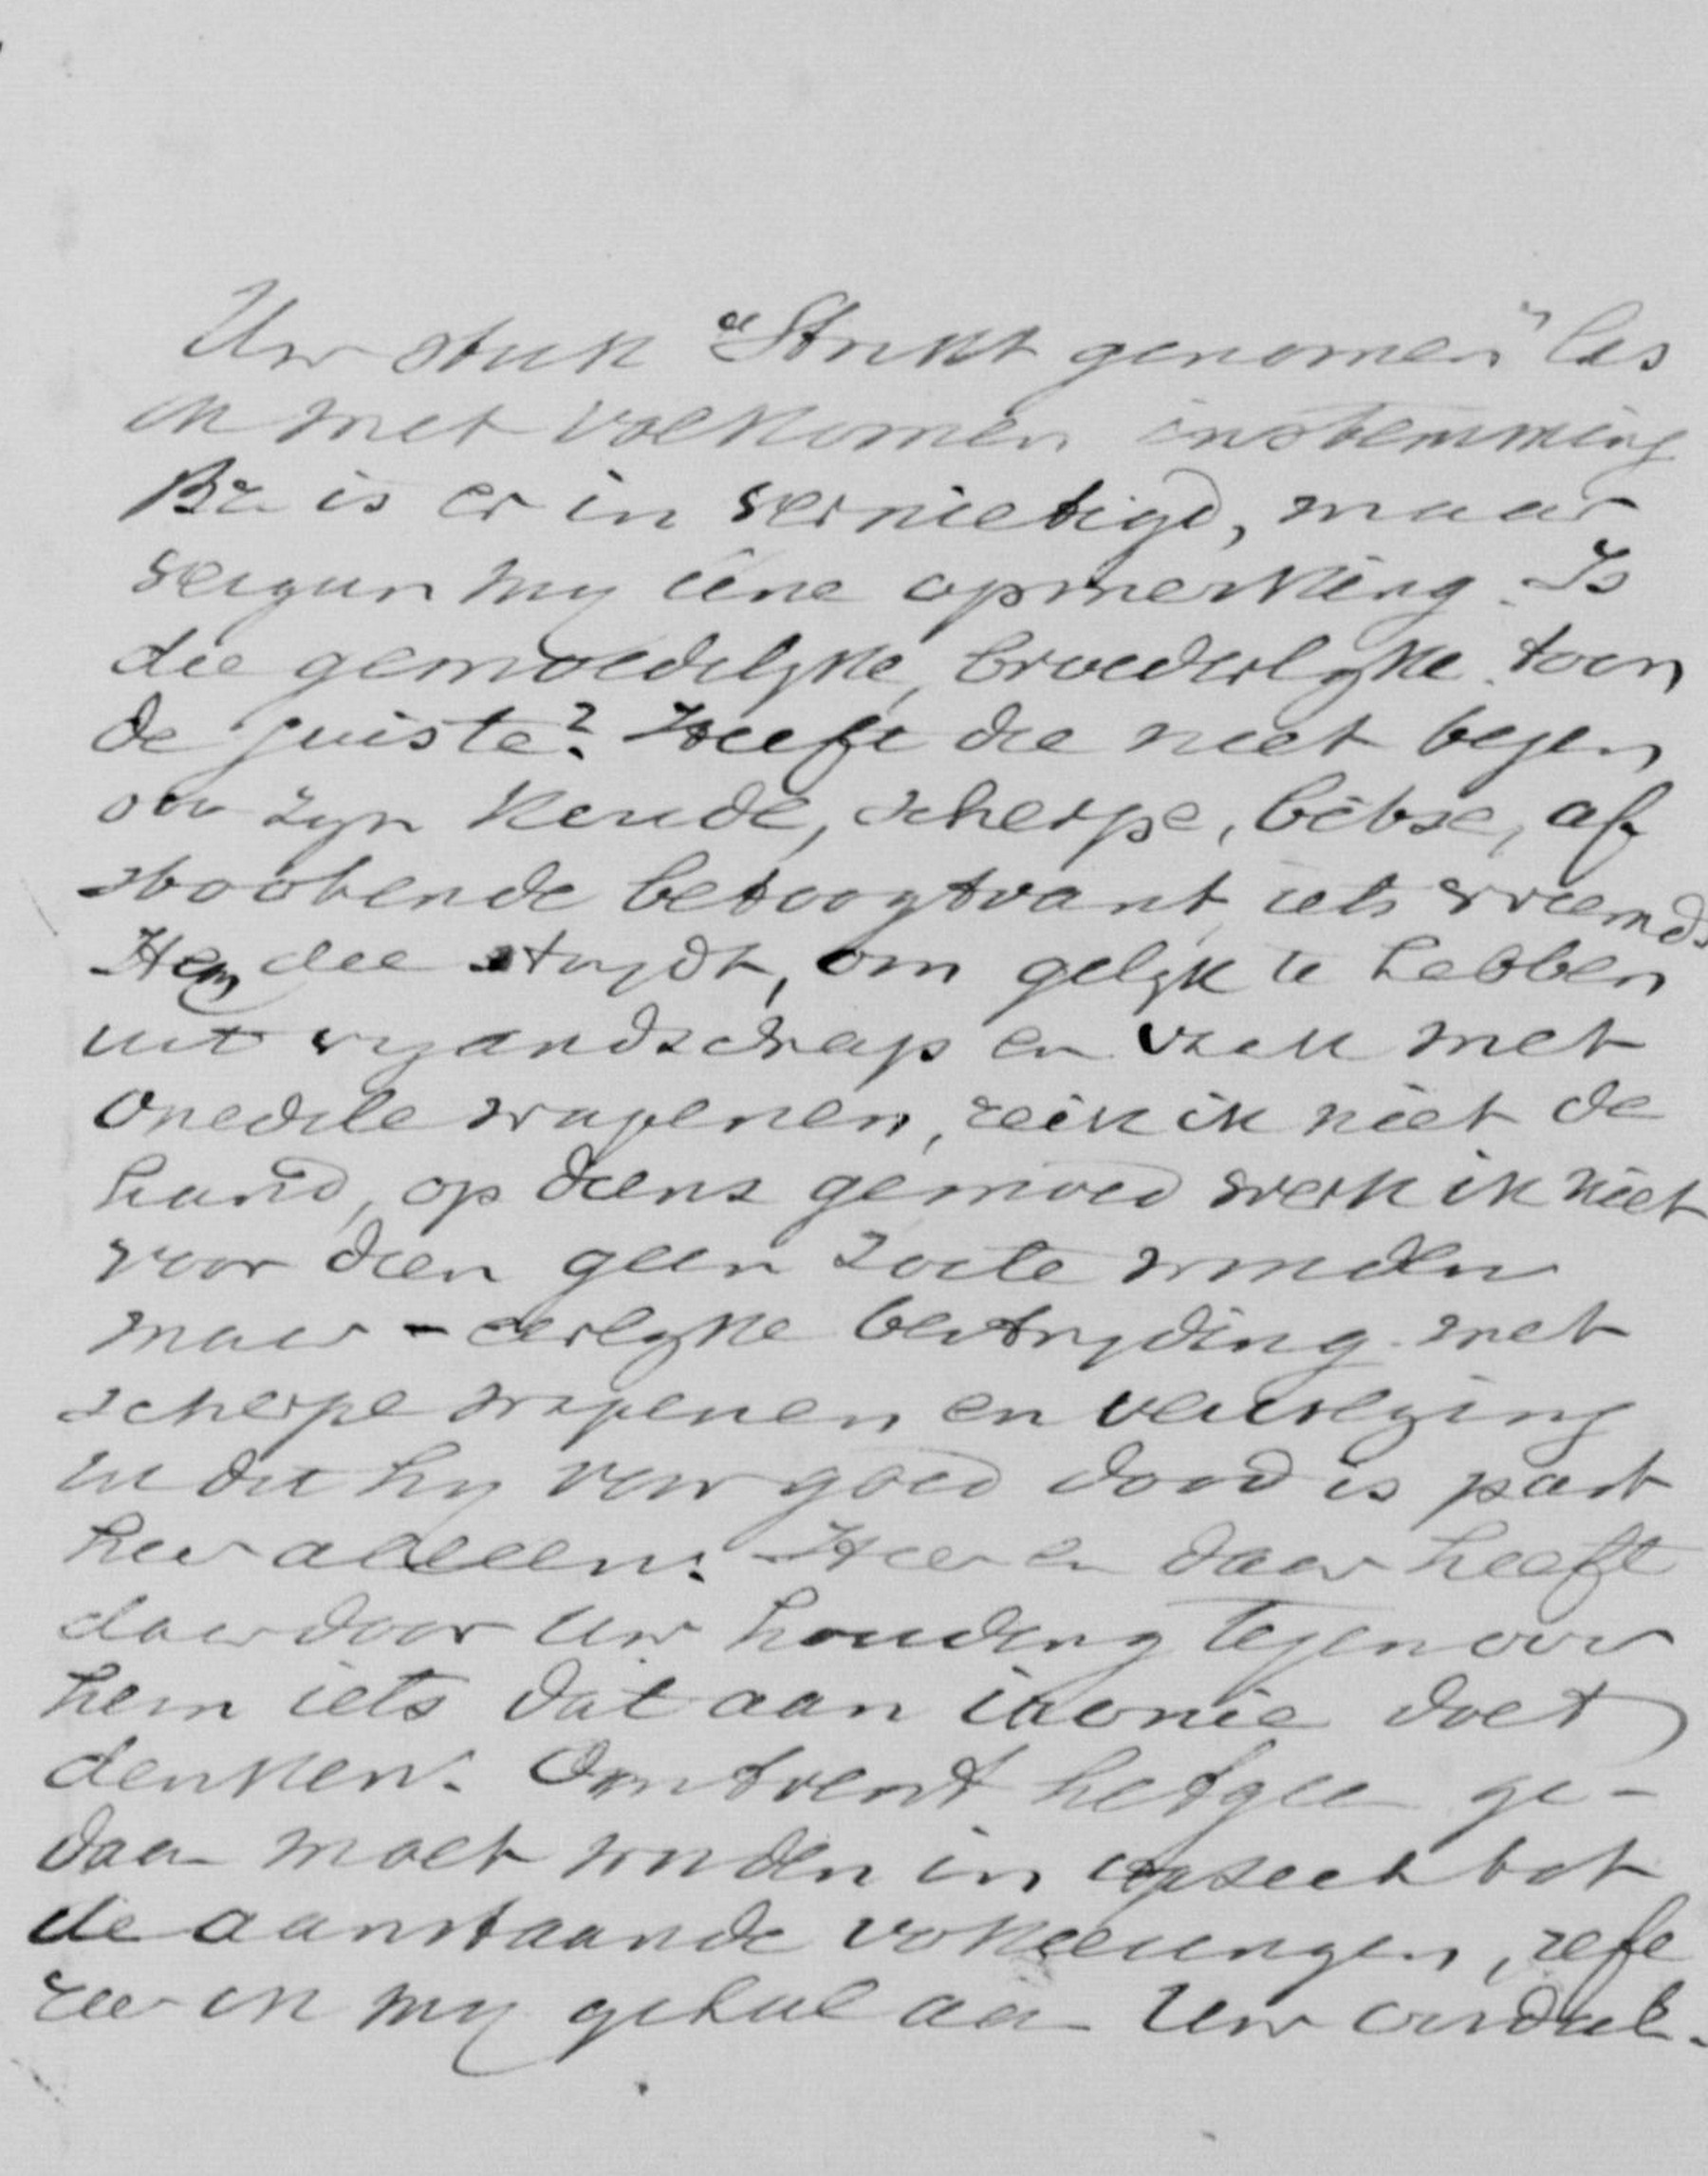 Uw stuk "Strikt genomen" las
ik met volkomen instemming
Br is er in vernietigd, maar
vergun my ééne opmerking. Is
die gemoedelyke, broederlyke toon
de juiste? Heeft die niet tegen
over zyn koude, scherpe, bitse, af
stootende betoogtrant iets vreemds
Hem die strydt, om gelyk te hebben
uit vyandschap en vaak met
onedele wapenen, reik ik niet de
hand, op diens gemoed werk ik niet
voor dien geen zoete woorden
maar - eerlyke bestryding met
scherpe wapenen en
dat hy voor goed dood is past
hier alleen. Hier en daar heeft
daardoor Uw houding tegenover
hem iets dat aan ironie doet
denken. Omtrent hetgeen ge-
daan moet worden in opzicht tot
de aanstaande verkiezingen, refe
reer ik my geheel aan Uw oordeel.